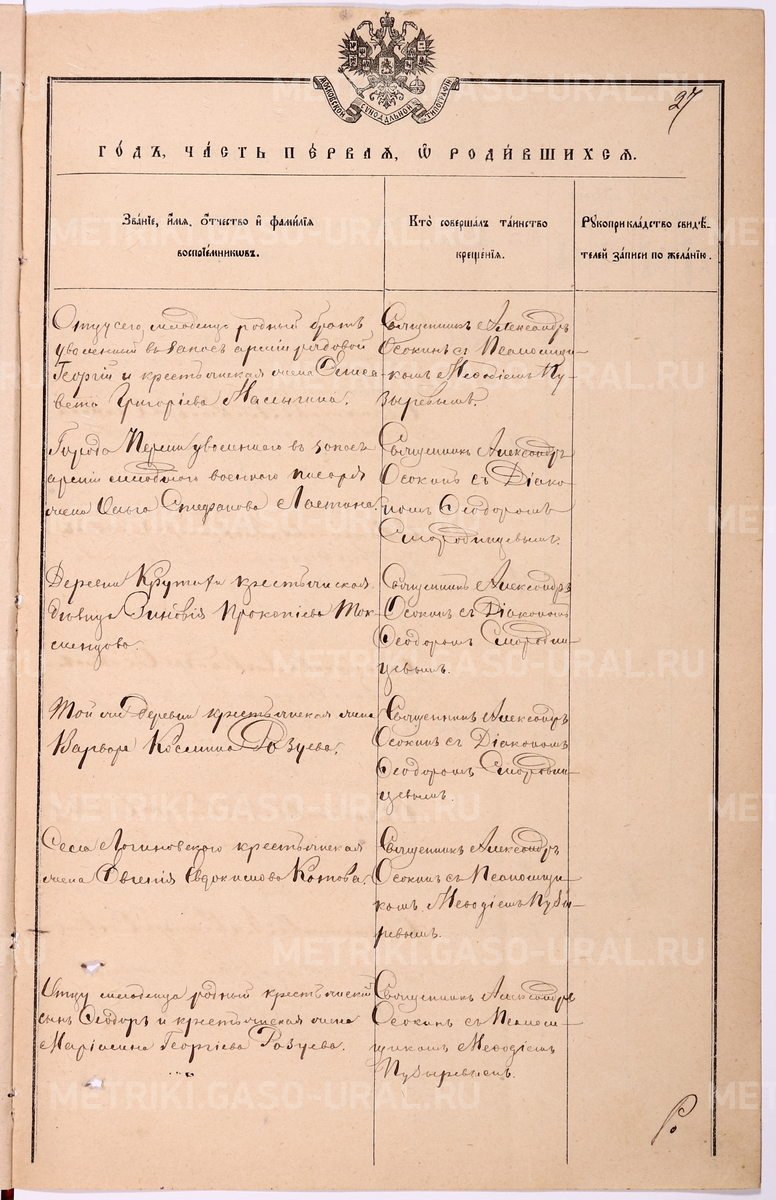 МОСКОВСКОЙ СѴНОДАЛЬНОЙ ТИПОГРАФІИ
27
ГО́ДЪ, ЧА́СТЬ ПЕ́РВАЯ, Ѡ РОДИ́ВШИХСЯ.
Зва́ніе, и́мя, о́тчество и҆ фами́лія
воспріе́мниковъ.
Кто̀ соверша́лъ та́инство
креще́нія.
Рꙋкоприкла́дство свидѣ́-
телей за́писи по жела́нію.
Отцу сего младенца родный братъ
уволенный въ запасъ арміи рядовой
Георгій и крестьянская жена Елиса
вета Григоріева
Священникъ Александръ
Осокинъ съ Псаломщи-
комъ Меѳодіемъ Пу-
зыревымъ.
Города Перми уволеннаго въ запасъ
арміи младшаго военнаго писаря
жена Ольга Стефанова Лаптина.
Священникъ Александръ
Осокинъ съ Діако-
номъ Ѳеодоромъ
Смородинцевымъ.
Деревни крестьянская
дѣвица Зиновія Прокопіева Ток
Священникъ Александръ
Осокинъ съ Діакономъ
Ѳеодоромъ Смородин-
цевымъ.
Той же деревни крестьянская жена
Варвара Космина Разуева.
Священникъ Александръ
Осокинъ съ Діакономъ
Ѳеодоромъ Смородин-
цевымъ.
Села Логиновскаго крестьянская
жена Евгенія Евдокимова Котова.
Священникъ Александръ
Осокинъ съ Псаломщи-
комъ Меѳодіемъ Пузы-
ревымъ.
Отцу младенца родный крестьянскій
сынъ Ѳеодоръ и крестьянская жена
Георгіева Разуева.
Священникъ Александръ
Осокинъ съ Псалом-
щикомъ Меѳодіемъ
Пузыревымъ.
METRIKI.GASO-URAL.RU